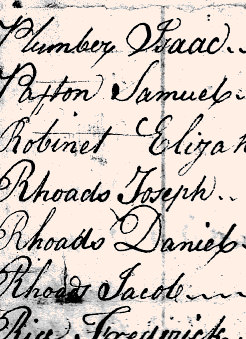 Plumber Isaac.
Paxton Samuel.
Robinet Eliza
Rhoads Joseph..
Rhoads Daniel.
Rhoads Jacob
Rice Frederick